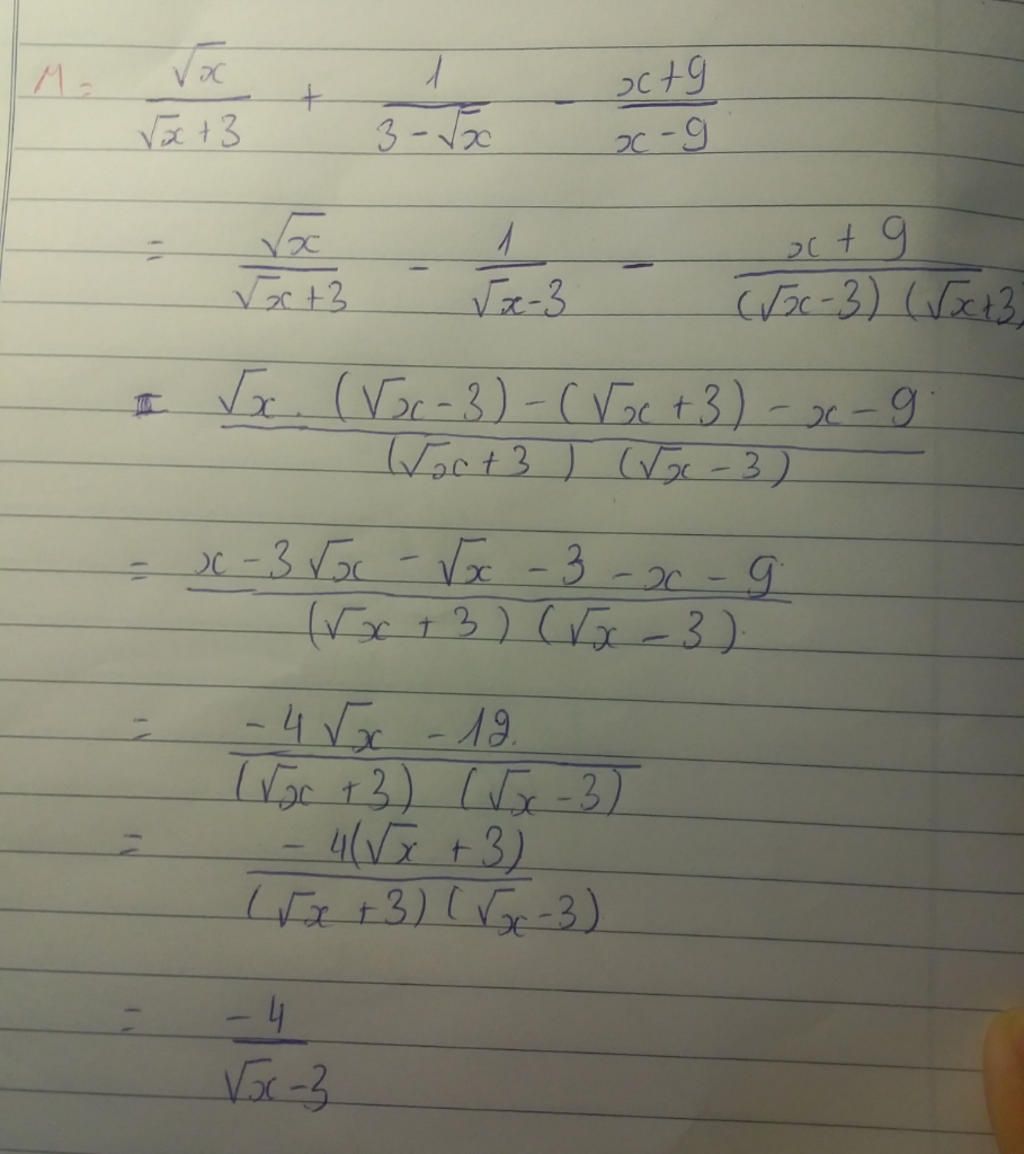 M = \frac{\sqrt{x}}{\sqrt{x}+3} + \frac{1}{3-\sqrt{x}} - \frac{x+9}{x-9}
= \frac{\sqrt{x}}{\sqrt{x}+3} - \frac{1}{\sqrt{x}-3} - \frac{x+9}{(\sqrt{x}-3)(\sqrt{x}+3)}
= \frac{\sqrt{x}.(\sqrt{x}-3)-(\sqrt{x}+3)-x-9}{(\sqrt{x}+3)(\sqrt{x}-3)}
= \frac{x-3\sqrt{x}-\sqrt{x}-3-x-9}{(\sqrt{x}+3)(\sqrt{x}-3)}
= \frac{-4\sqrt{x}-12}{(\sqrt{x}+3)(\sqrt{x}-3)}
= \frac{-4(\sqrt{x}+3)}{(\sqrt{x}+3)(\sqrt{x}-3)}
= \frac{-4}{\sqrt{x}-3}